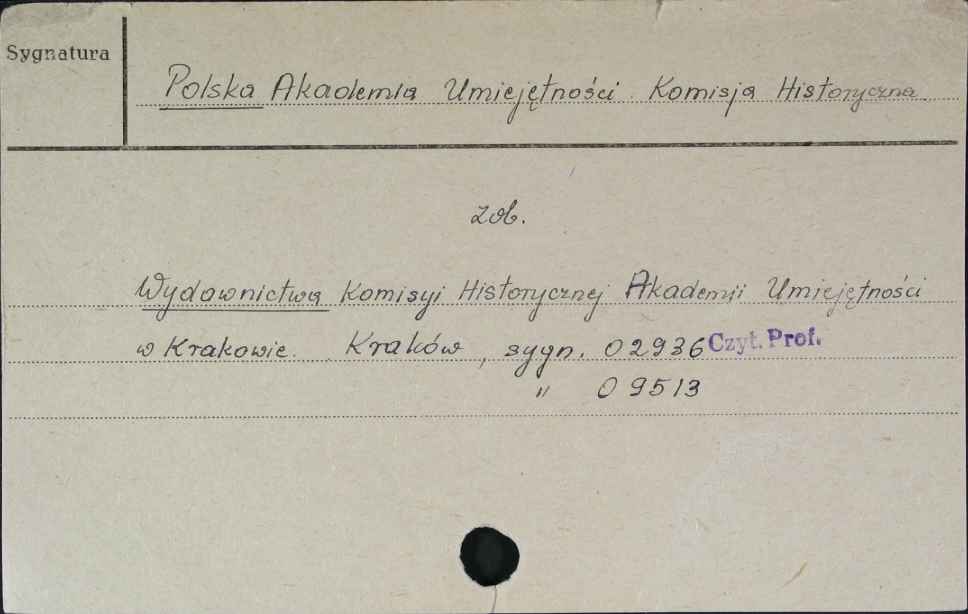 Sygnatura
Polska Akademia Umiejętności Komisja Historyczna
zob.
Wydawnictwa Komisyi Historycznej Akademii Umiejętności
w Krakowie. Kraków, sygn. 02936 Czyt. Prof.
" 09513